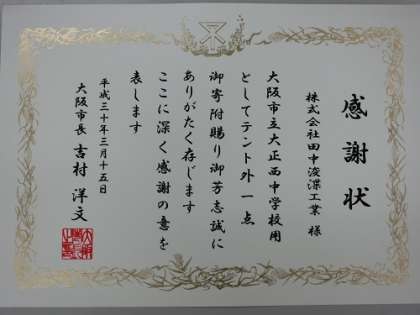 感謝状
株式会社田中浚渫工業 様
大阪市立大正西中学校用
としてテント外一点
御寄附賜り御芳志誠に
ありがたく存じます
ここに深く感謝の意を
表します
平成三十年三月十五日
大阪市長 吉村洋文